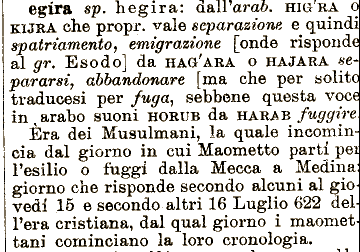 egira sp. hegira: dall'arab. HIG'RA o
KIJRA che propr. vale separazione e quindi
spatriamento, emigrazione [onde risponde
al gr. Esodo] da HAG'ARA o HAJARA se-
pararsi, abbandonare [ma che per solito
traducesi per fuga, sebbene questa voce
in arabo suoni HORUB da HARAB fuggire.
Èra dei Musulmani, la quale incomin-
cia dal giorno in cui Maometto partí per
l'esilio o fuggí dalla Mecca a Medina:
giorno che risponde secondo alcuni al gio-
vedí 15 e secondo altri 16 Luglio 622 del-
l'era cristiana, dal qual giorno i maomet-
tani cominciano la loro cronologia.